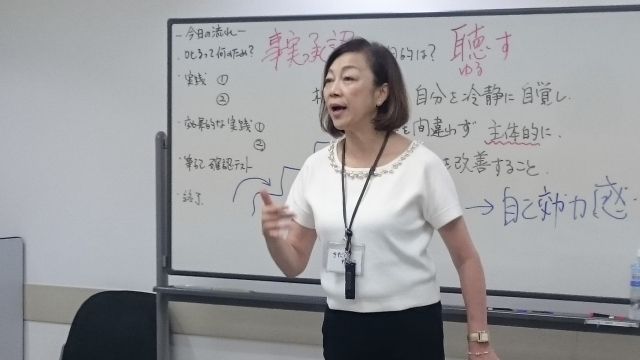 ー今日の流れー
・叱るって何のため?
事実→承認
的は?
聴す
ゆる
・実践 ①
②
自分を冷静に自覚し、
・効果的な実践 ①
②
を間違わず 主体的に、
・筆記 確認テスト
を改善すること。
・終了
→自己効力感